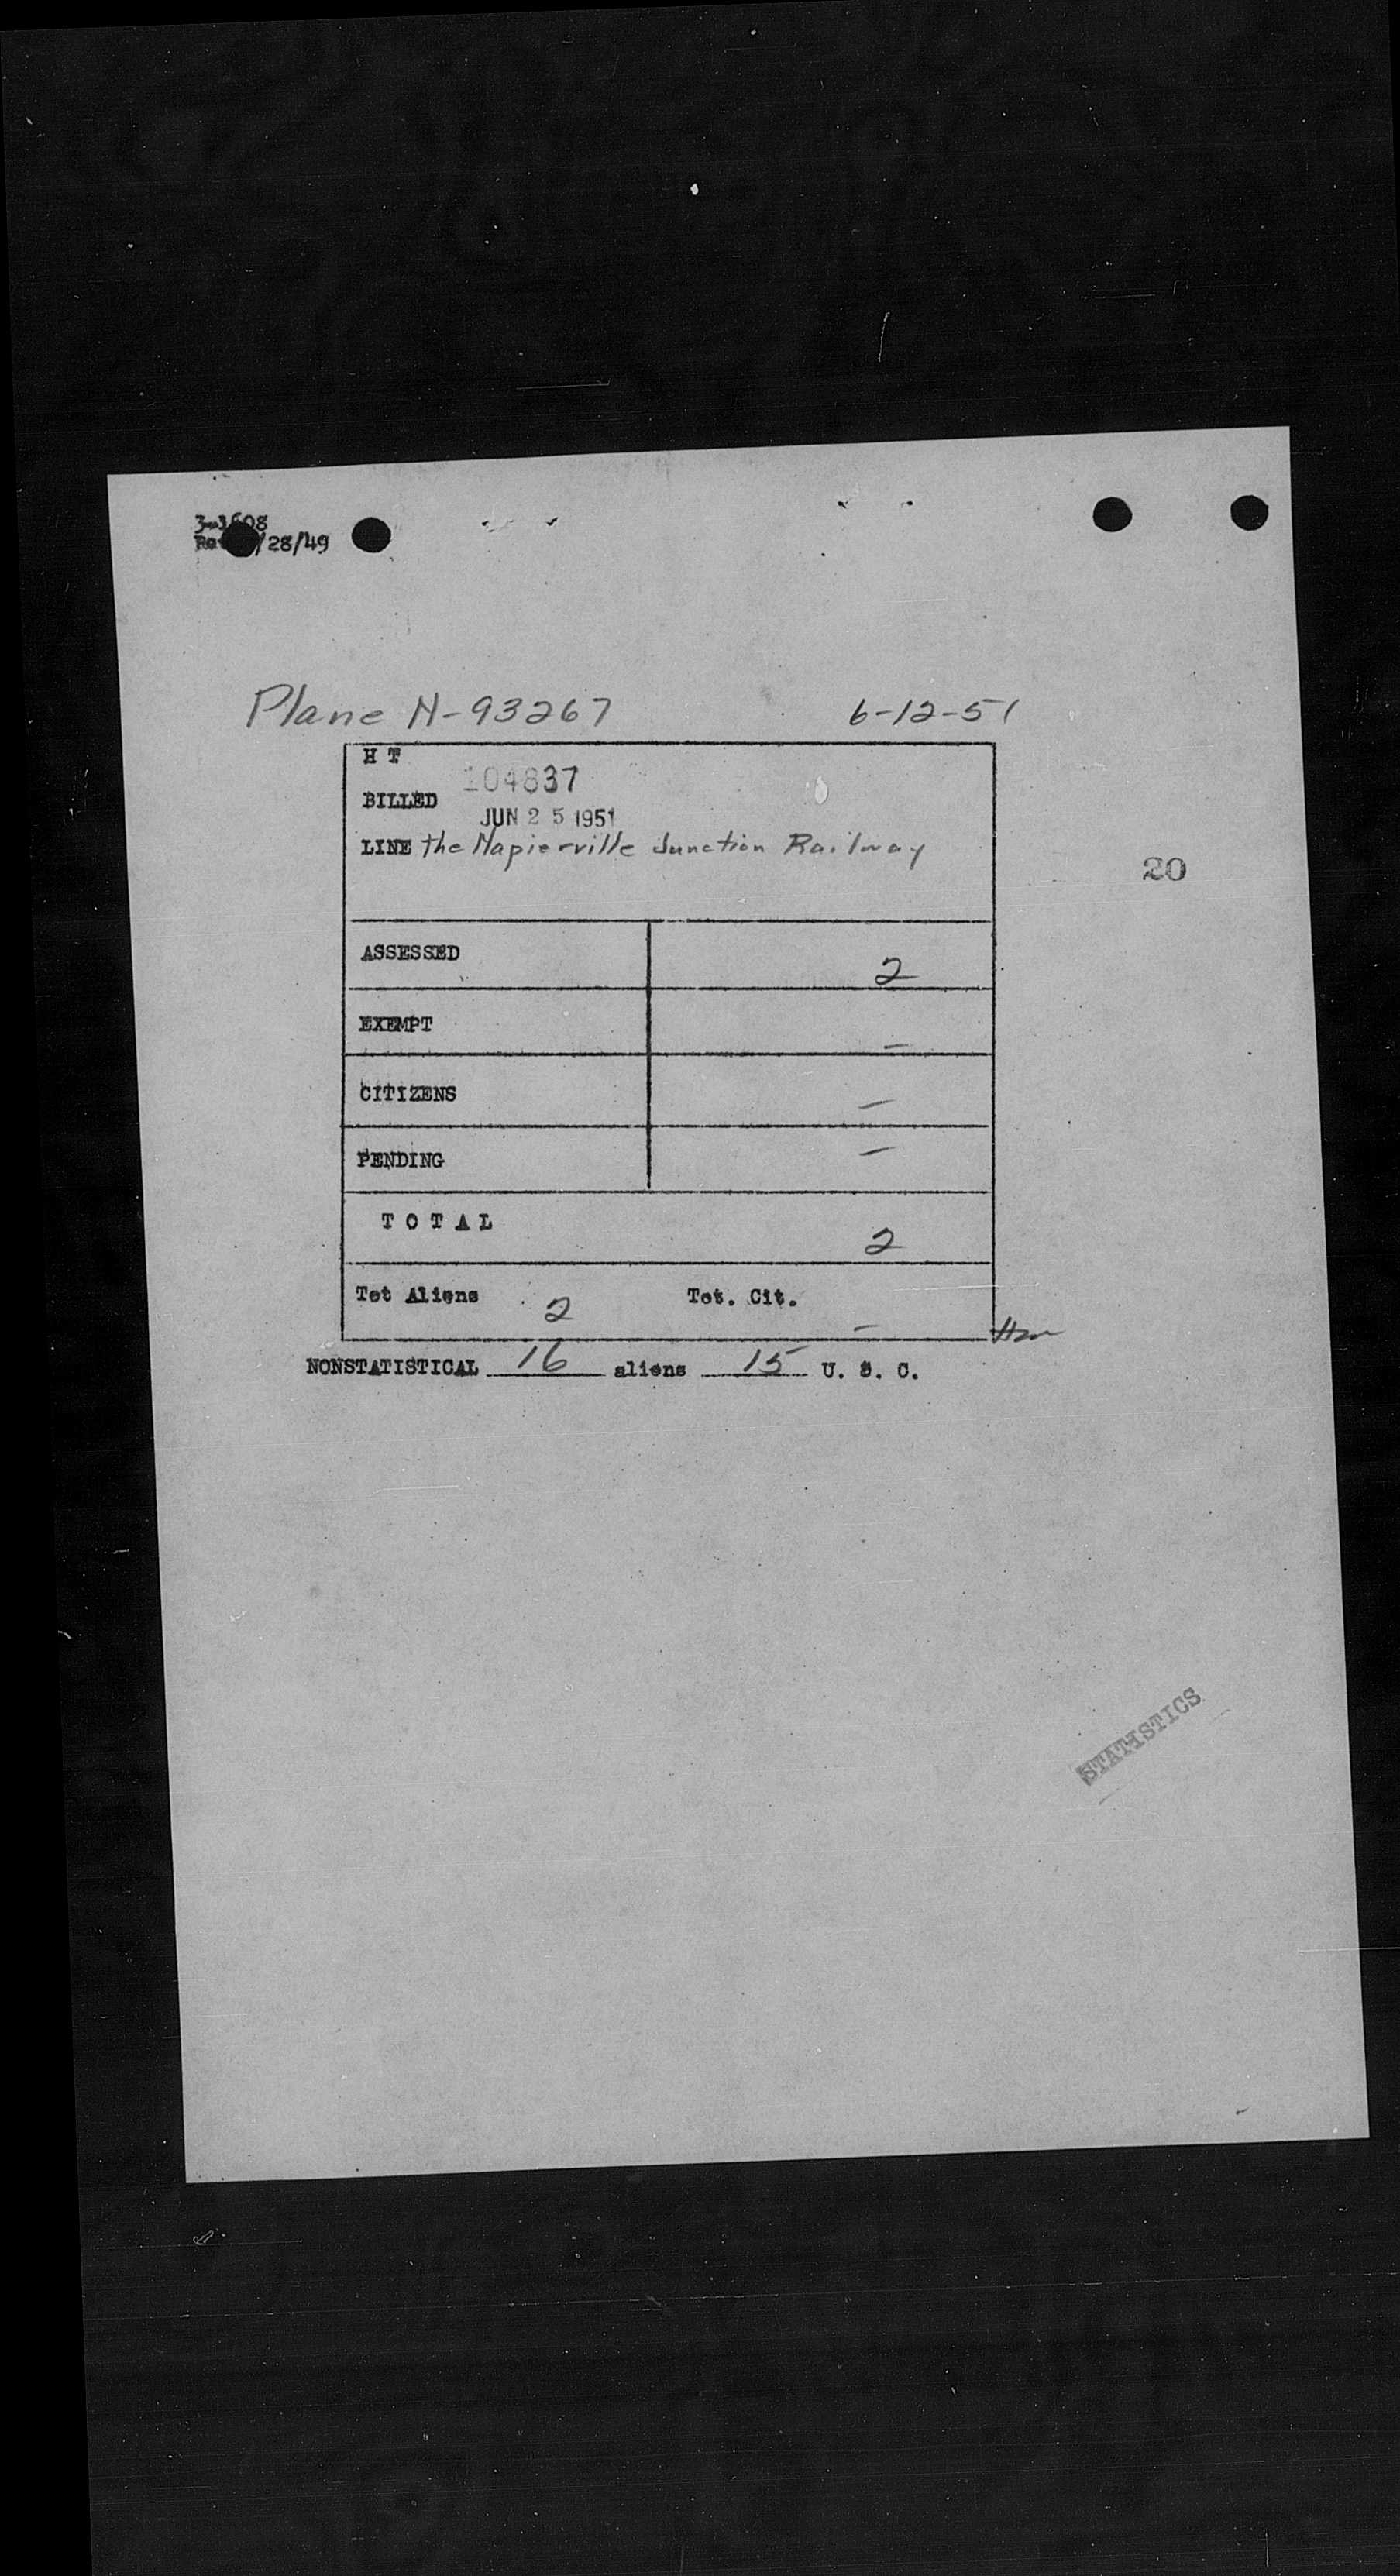 3-1608
/28/49
Plane N-93267 6-12-51
H T
104837
BILLED
JUN 25 1951
LINE the Napierville Junction Railway
20
ASSESSED 2
EXEMPT –
CITIZENS –
PENDING –
T O T A L 2
Tot Aliens 2 Tot. Cit. –
NONSTATISTICAL 16 aliens 15 U. S. C.
STATISTICS